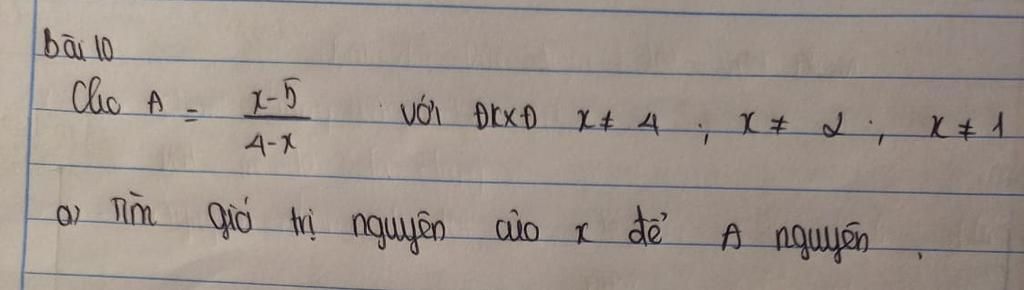 bài 10
Cho A = \frac{x-5}{4-x} với ĐKXĐ x ≠ 4 ; x ≠ 2 ; x ≠ 1
a) Tìm giá trị nguyên của x để A nguyên.